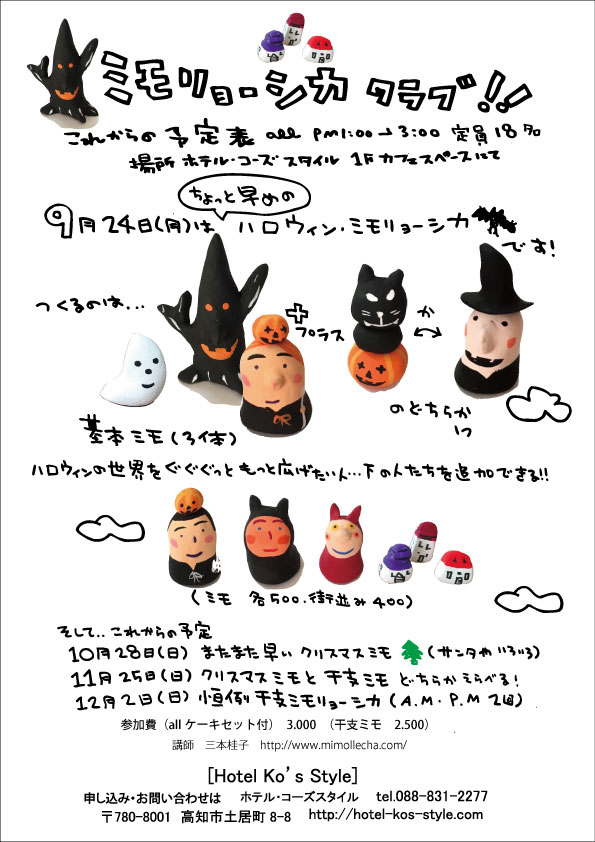 ミモリョーシカ クラブ!!
これからの予定表 all PM1:00→3:00 定員18名
場所 ホテル・コーズ スタイル 1F カフェスペースにて
ちょっと早めの
9月24日(月)は ハロウィン・ミモリョーシカ
です!
つくるのは...
+
プラス
か
のどちらか
1つ
基本ミモ(3体)
ハロウィンの世界をぐぐぐっと もっと広げたい人...下の人たちを追加できる!!
(ミモ 各500.街並み400)
そして..これからの予定
10月28日(日) またまた早い クリスマスミモ (サンタやいろいろ)
11月25日(日) クリスマスミモと 干支ミモ どちらかえらべる!
12月2日(日) 恒例 干支ミモリョーシカ (A.M・P.M 2回)
参加費(all ケーキセット付) 3.000 (干支ミモ 2.500)
講師 三本桂子 http://www.mimollecha.com/
[Hotel Ko's Style]
申し込み・お問い合わせは ホテル・コーズスタイル tel.088-831-2277
〒780-8001 高知市土居町8-8 http://hotel-kos-style.com/